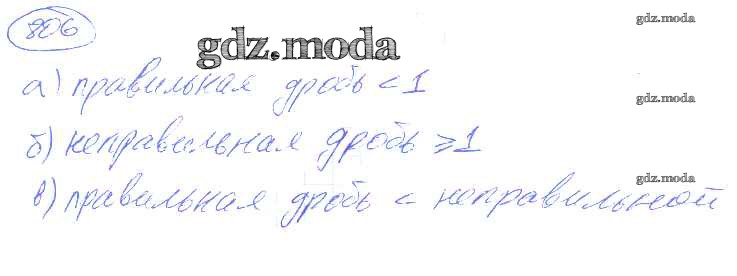 806
gdz.moda
gdz.moda
а) правильная дробь < 1
gdz.moda
б) неправильная дробь ⩾ 1
gdz.moda
в) правильная дробь < неправильной